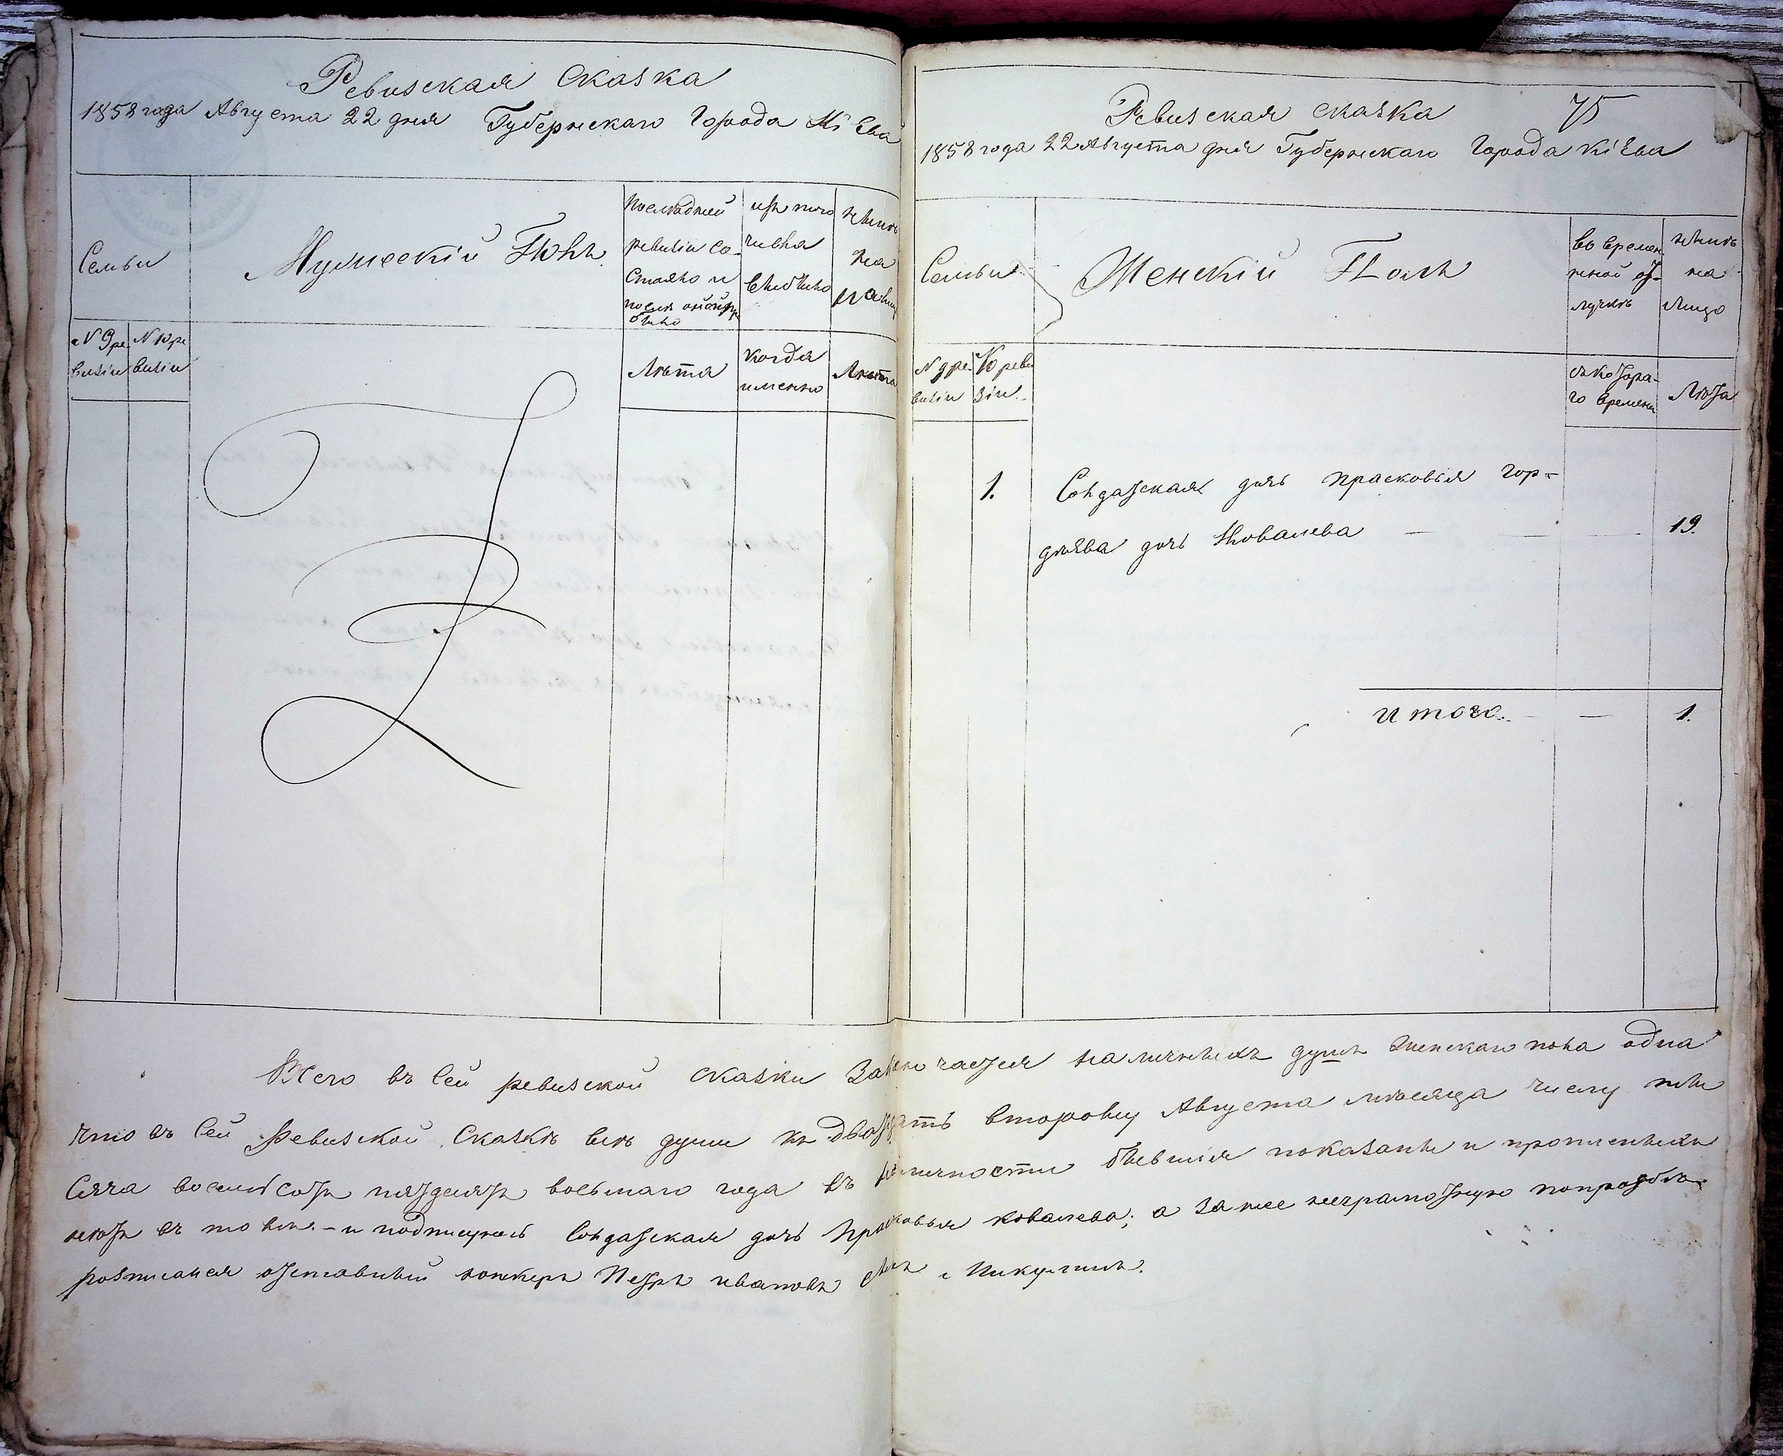 Ревизская Сказка
1858 года Августа 22 дня Губернскаго Города Кіева
Семьи
Мужескій Полъ
Последней
ревизіи со-
стояло и
после оной при
было
изъ того
числа
выбыло
ныне
на
лицо
N 9 ре
визіи
N 10 ре
визіи
Лѣта
когда
именно
Лѣта
Ревизская сказка
75
1858 года 22 Августа дня Губернскаго Города Кіева
Семьи
Женскій Полъ
во времен
нной от-
лучкѣ
нынѣ
на
Лицо
N 9 ре
визіи
10 реви
зіи
съ котора-
го времени
Лѣта
1. Солдатская дочь Прасковья Гор-
дѣева дочь Ковалева — — 19
Итого — 1.
Всего въ сей ревизской сказки заключается наличныхъ душъ женскаго пола одна
что въ сей ревизской сказкѣ всѣ души къ двадцать второму Августа мѣсяца числу ты
сяча восемьсотъ пятдесятъ восьмаго года въ наличности бывшія показаны и прописныхъ
нѣтъ въ томъ и подписуюсь Солдатская дочь Прасковья Ковалева; а за нее неграмотную по просьбѣ
росписался отставный юнкеръ Петръ Ивановъ сынъ Никулинъ.